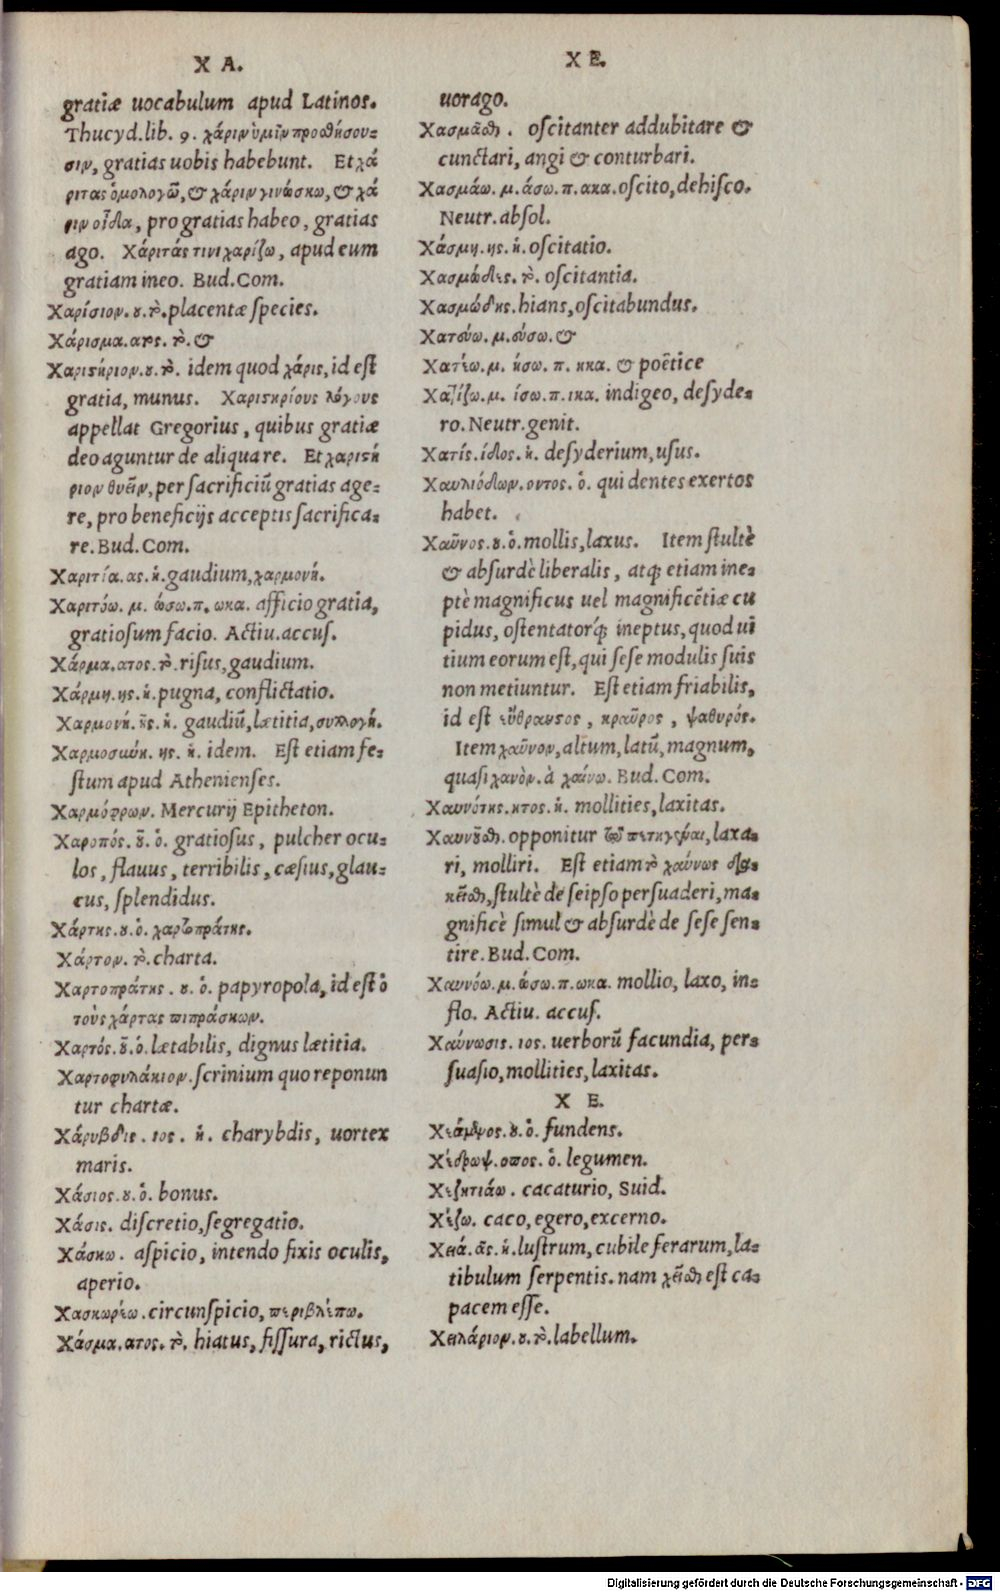 X A.
gratiæ uocabulum apud Latinos.
Thucyd. lib. 9. χάριν ὑμῖν προσθήσου=
σιν, gratias uobis habebunt. Et χά
ριτας ὁμολογῶ, & χάριν γινώσκω, & χά
ριν οἶδα, pro gratias habeo, gratias
ago. Χάριτάς τινι χαρίζω, apud eum
gratiam ineo. Bud. Com.
Χαρίσιον. ου. τὸ. placentæ species.
Χάρισμα. ατος. τὸ. &
Χαριστήριον. ου. τὸ. idem quod χάρις, id est
gratia, munus. Χαριστηρίους λόγους
appellat Gregorius, quibus gratiæ
deo aguntur de aliqua re. Et χαριστή
ριον θύειν, per sacrificiũ gratias age=
re, pro beneficijs acceptis sacrifica=
re. Bud. Com.
Χαριτία. ας. ἡ. gaudium, χαρμονή.
Χαριτόω. μ. ώσω. π. ωκα. afficio gratia,
gratiosum facio. Actiu. accus.
Χάρμα. ατος. τὸ. risus, gaudium.
Χάρμη. ης. ἡ. pugna, conflictatio.
Χαρμονή. ῆς. ἡ. gaudiũ, lætitia, συλλογή.
Χαρμοσύνη. ης. ἡ. idem. Est etiam fe=
stum apud Athenienses.
Χαρμόφρων. Mercurij Epitheton.
Χαροπός. οῦ. ὁ. gratiosus, pulcher ocu=
los, flauus, terribilis, cæsius, glau=
cus, splendidus.
Χάρτης. ου. ὁ. χαρτοπράτης.
Χάρτον. τὸ. charta.
Χαρτοπράτης. ου. ὁ. papyropola, id est ὁ
τοὺς χάρτας πιπράσκων.
Χαρτός. οῦ. ὁ. lætabilis, dignus lætitia.
Χαρτοφυλάκιον. scrinium quo reponun
tur chartæ.
Χάρυβδις. ιος. ἡ. charybdis, uortex
maris.
Χάσιος. ου. ὁ. bonus.
Χάσις. discretio, segregatio.
Χάσκω. aspicio, intendo fixis oculis,
aperio.
Χασκωρέω. circunspicio, περιβλέπω.
Χάσμα. ατος. τὸ. hiatus, fissura, rictus,
X E.
uorago.
Χασμᾶσθαι. oscitanter addubitare &
cunctari, angi & conturbari.
Χασμάω. μ. άσω. π. ακα. oscito, dehisco.
Neutr. absol.
Χάσμη. ης. ἡ. oscitatio.
Χασμώδες. τὸ. oscitantia.
Χασμώδης. hians, oscitabundus.
Χατεύω. μ. εύσω. &
Χατέω. μ. ήσω. π. ηκα. & poëtice
Χατίζω. μ. ίσω. π. ικα. indigeo, desyde=
ro. Neutr. genit.
Χατίς. ίδος. ἡ. desyderium, usus.
Χαυλιόδων. οντος. ὁ. qui dentes exertos
habet.
Χαῦνος. ου. ὁ. mollis, laxus. Item stultè
& absurdè liberalis, atq; etiam ine=
ptè magnificus uel magnificẽtiæ cu
pidus, ostentatorq́; ineptus, quod ui
tium eorum est, qui sese modulis suis
non metiuntur. Est etiam friabilis,
id est εὔθραυστος, κραῦρος, ψαθυρός.
Item χαῦνον, altum, latũ, magnum,
quasi χανὸν. à χαίνω. Bud. Com.
Χαυνότης. ητος. ἡ. mollities, laxitas.
Χαυνοῦσθαι. opponitur τῷ πεπηγέναι, laxa=
ri, molliri. Est etiam τὸ χαύνως δια=
κεῖσθαι, stultè de seipso persuaderi, ma=
gnificè simul & absurdè de sese sen=
tire. Bud. Com.
Χαυνόω. μ. ώσω. π. ωκα. mollio, laxo, in=
flo. Actiu. accus.
Χαύνωσις. ιος. uerborũ facundia, per=
suasio, mollities, laxitas.
X E.
Χεάμενος. ου. ὁ. fundens.
Χέδρωψ. οπος. ὁ. legumen.
Χεζητιάω. cacaturio, Suid.
Χέζω. caco, egero, excerno.
Χειά. ᾶς. ἡ. lustrum, cubile ferarum, la=
tibulum serpentis. nam χεῖσθαι est ca=
pacem esse.
Χειλάριον. ου. τὸ. labellum.
Digitalisierung gefördert durch die Deutsche Forschungsgemeinschaft - DFG